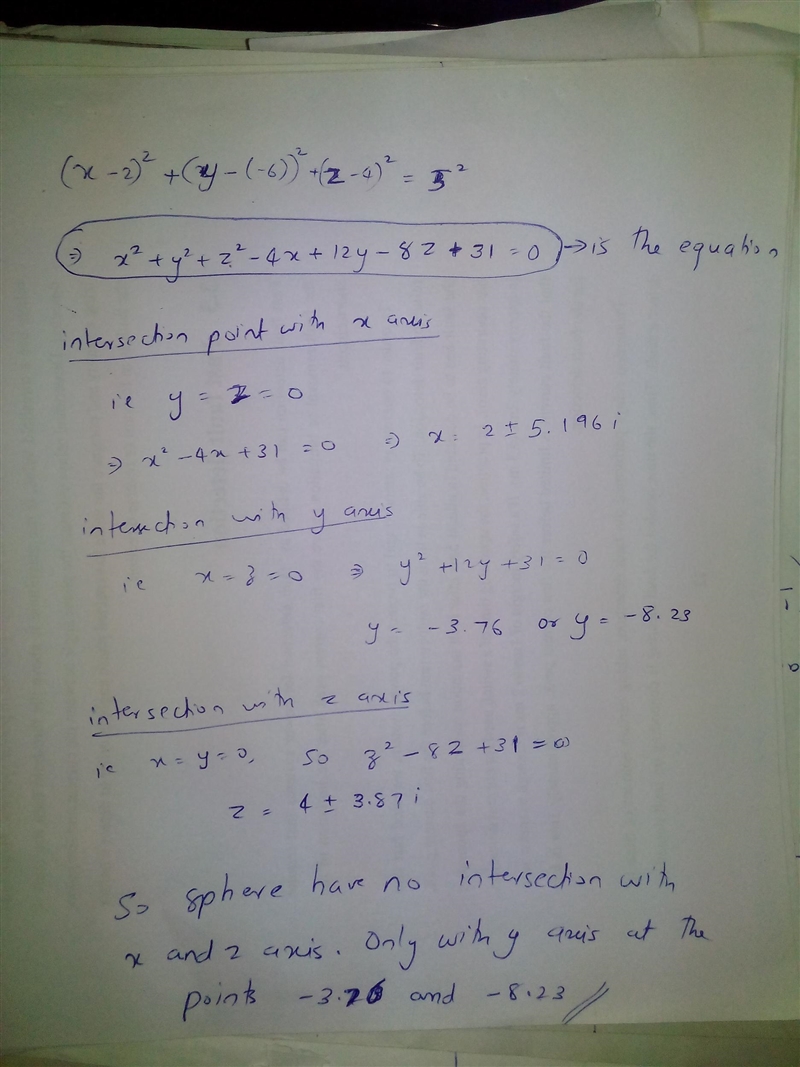 (x - 2)² + (y - (-6))² + (z - 4)² = 5²
⇒ x² + y² + z² - 4x + 12y - 8z + 31 = 0 → is the equation
intersection point with x axis
ie y = z = 0
⇒ x² - 4x + 31 = 0 ⇒ x = 2 ± 5.196 i
intersection with y axis
ie x = z = 0 ⇒ y² + 12y + 31 = 0
y = -3.76 or y = -8.23
intersection with z axis
ie x = y = 0, So z² - 8z + 31 = 0
z = 4 ± 3.87 i
So sphere have no intersection with
x and z axis. Only with y axis at the
points -3.76 and -8.23 //